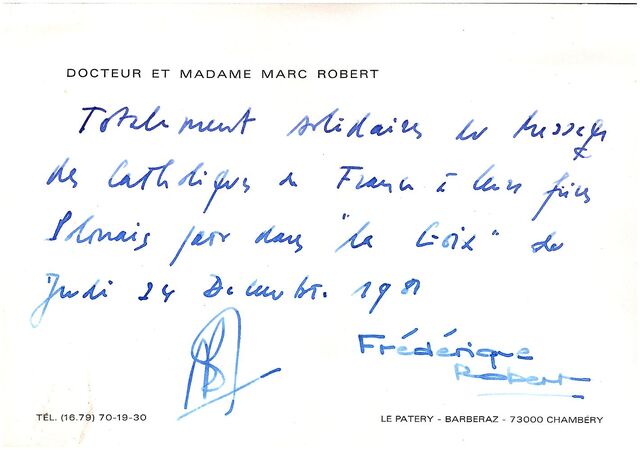 DOCTEUR ET MADAME MARC ROBERT
Totalement solidaires du message
des Catholiques de France à leurs frères
Polonais paru dans "la Croix" du
Jeudi 24 Décembre 1981
Frédérique
Robert
TÉL. (16.79) 70-19-30
LE PATERY - BARBERAZ - 73000 CHAMBÉRY